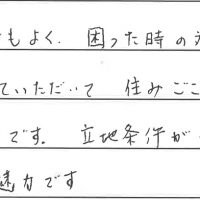 もよく、困った時の対
ていただいて 住みごこ
です。立地条件が
魅力です